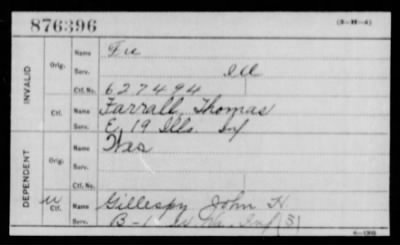 876396 (3-H-4)
INVALID Orig. Name Fu
Serv. Ill
Ctf. Ctf. No. 627494
Name Farrall, Thomas
Serv. E, 19 Ills. Inf
DEPENDENT Orig. Name Was
Serv.
Ctf. No.
Ctf. Name Gillespy John H
Serv. B-1 W. Va. Inf (S)